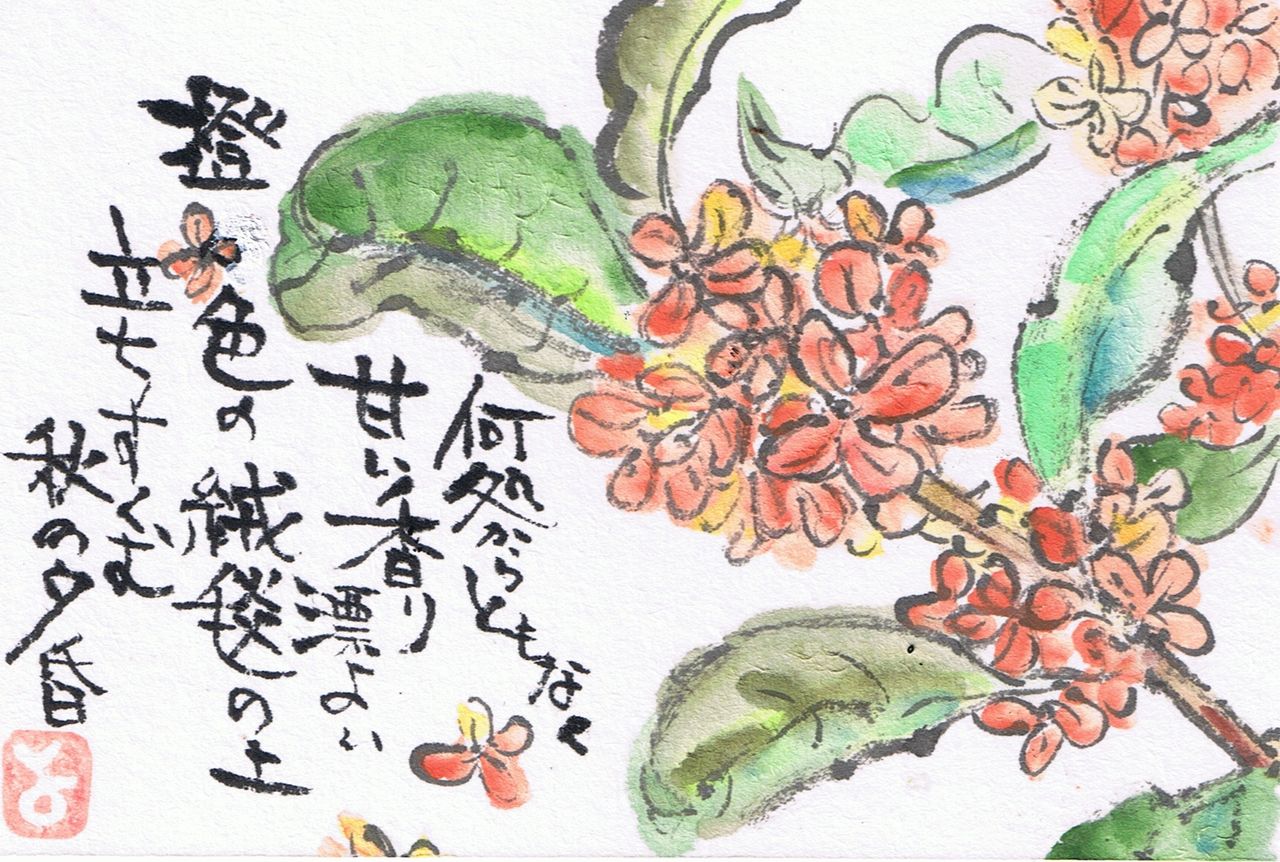 何処からともなく
甘い香り漂よい
橙色の絨毯の上
立ちすくむ
秋の夕昏
とよ